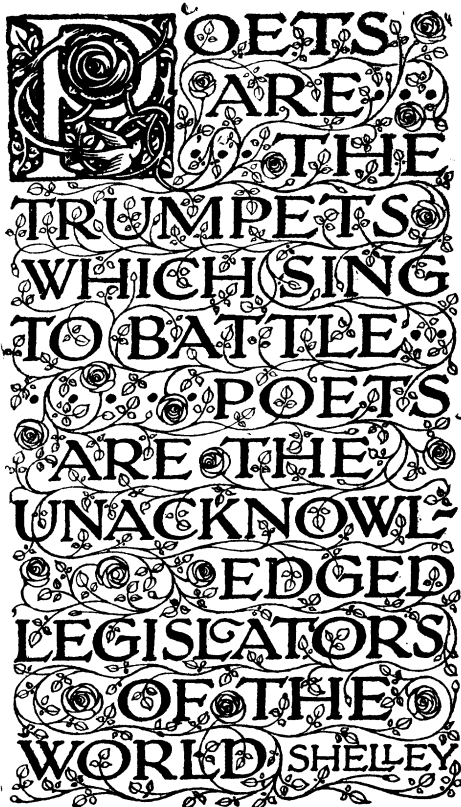 POETS
ARE
THE
TRUMPETS
WHICH SING
TO BATTLE
POETS
ARE THE
UNACKNOWL-
EDGED
LEGISLATORS
OF THE
WORLD. SHELLEY